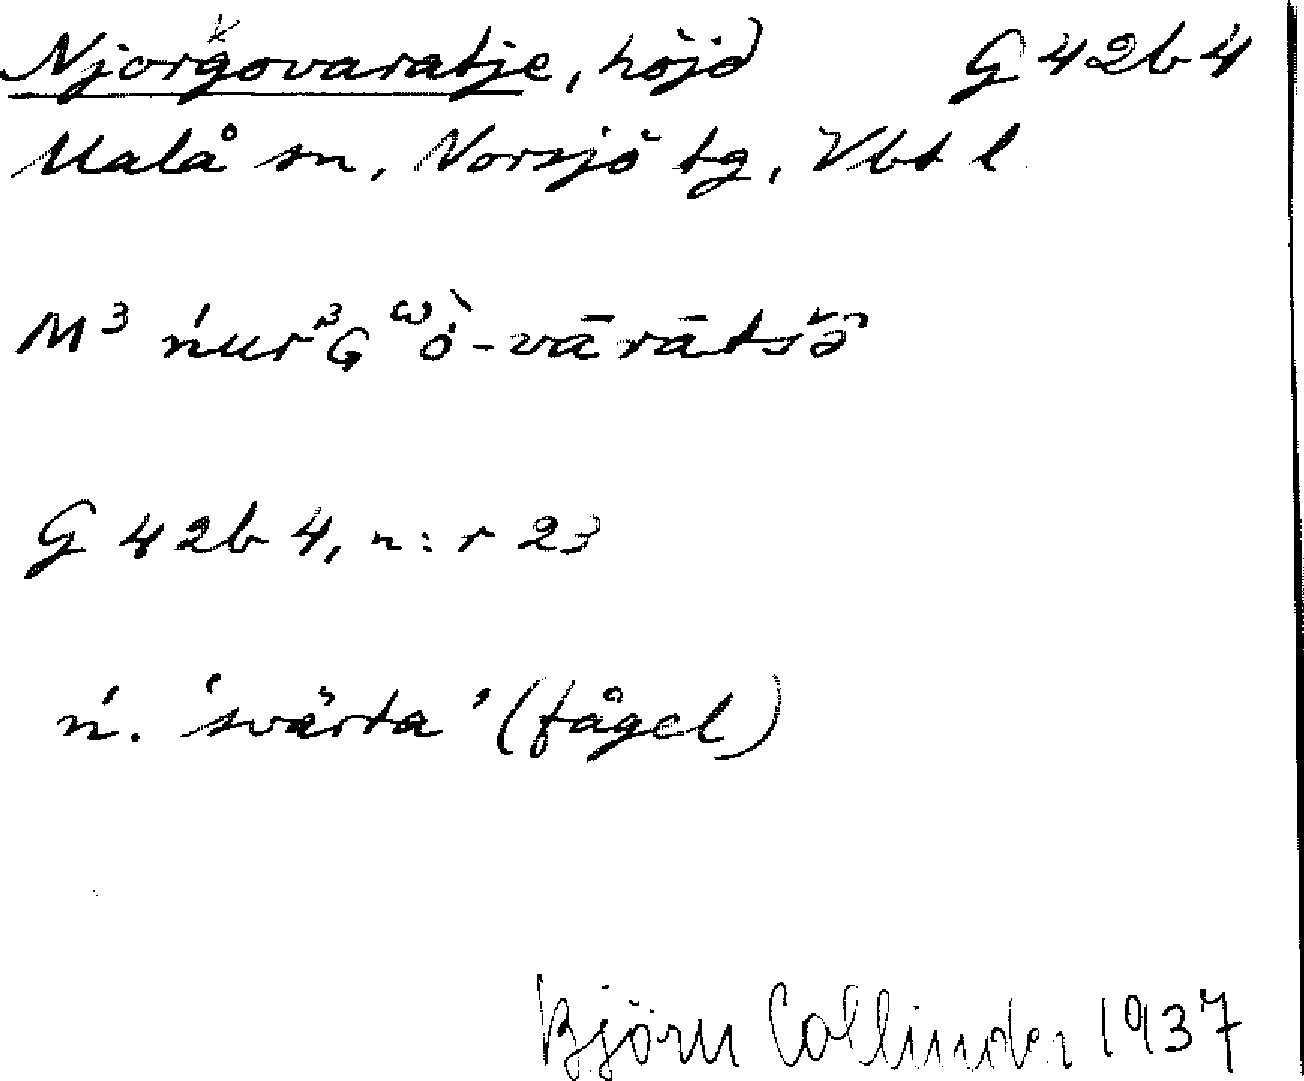 Njorgovaratje, höjd G 42b4
k
Malå sn, Norsjö tg, Vbt l.
M³ ńurᵌGᵚò̇-vārātsə̆
G 42b 4, n:r 23
ń. 'svärta' (fågel)
Björn Collinder 1937